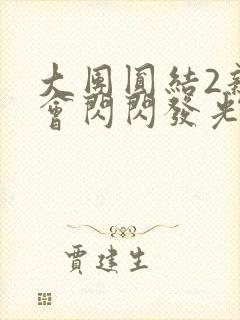 大團圓結2新
會閃閃發光
賈建生